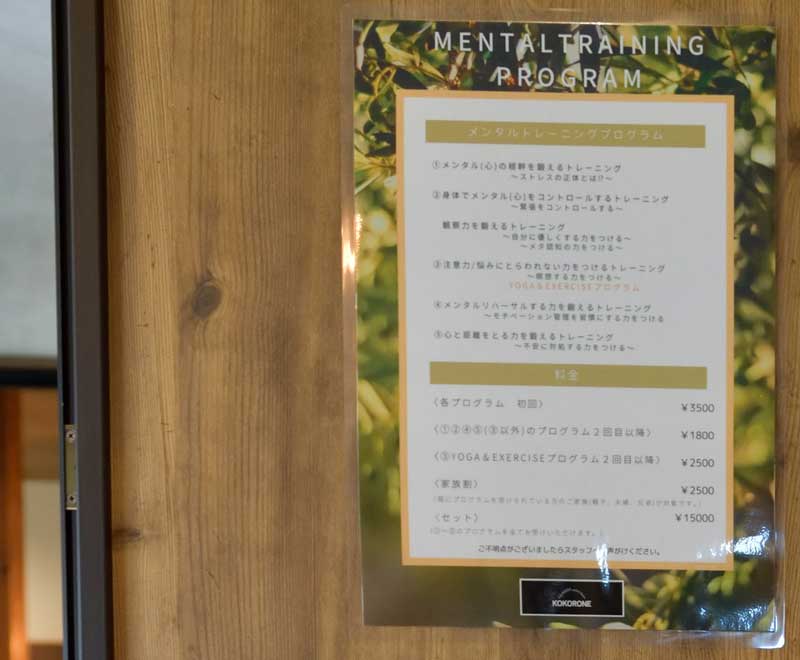 MENTALTRAINING
PROGRAM
メンタルトレーニングプログラム
①メンタル(心)の根幹を鍛えるトレーニング
～ストレスの正体とは!?～
②身体でメンタル(心)をコントロールするトレーニング
～緊張をコントロールする～
観察力を鍛えるトレーニング
～自分に優しくする力をつける～
～メタ認知の力をつける～
③注意力/悩みにとらわれない力をつけるトレーニング
～瞑想する力をつける～
YOGA＆EXERCISEプログラム
④メンタルリハーサルする力を鍛えるトレーニング
～モチベーション管理を習慣にする力をつける
⑤心と距離をとる力を鍛えるトレーニング
～不安に対処する力をつける～
料金
〈各プログラム 初回〉 ￥3500
〈①②④⑤(③以外)のプログラム２回目以降〉 ￥1800
〈③YOGA＆EXERCISEプログラム２回目以降〉 ￥2500
〈家族割〉 ￥2500
(既にプログラムを受けられている方のご家族(親子、夫婦、兄弟)が対象です。)
〈セット〉 ￥15000
(①～⑤のプログラムを全てお受けいただけます。)
ご不明点がございましたらスタッフへ 声がけください。
KOKORONE